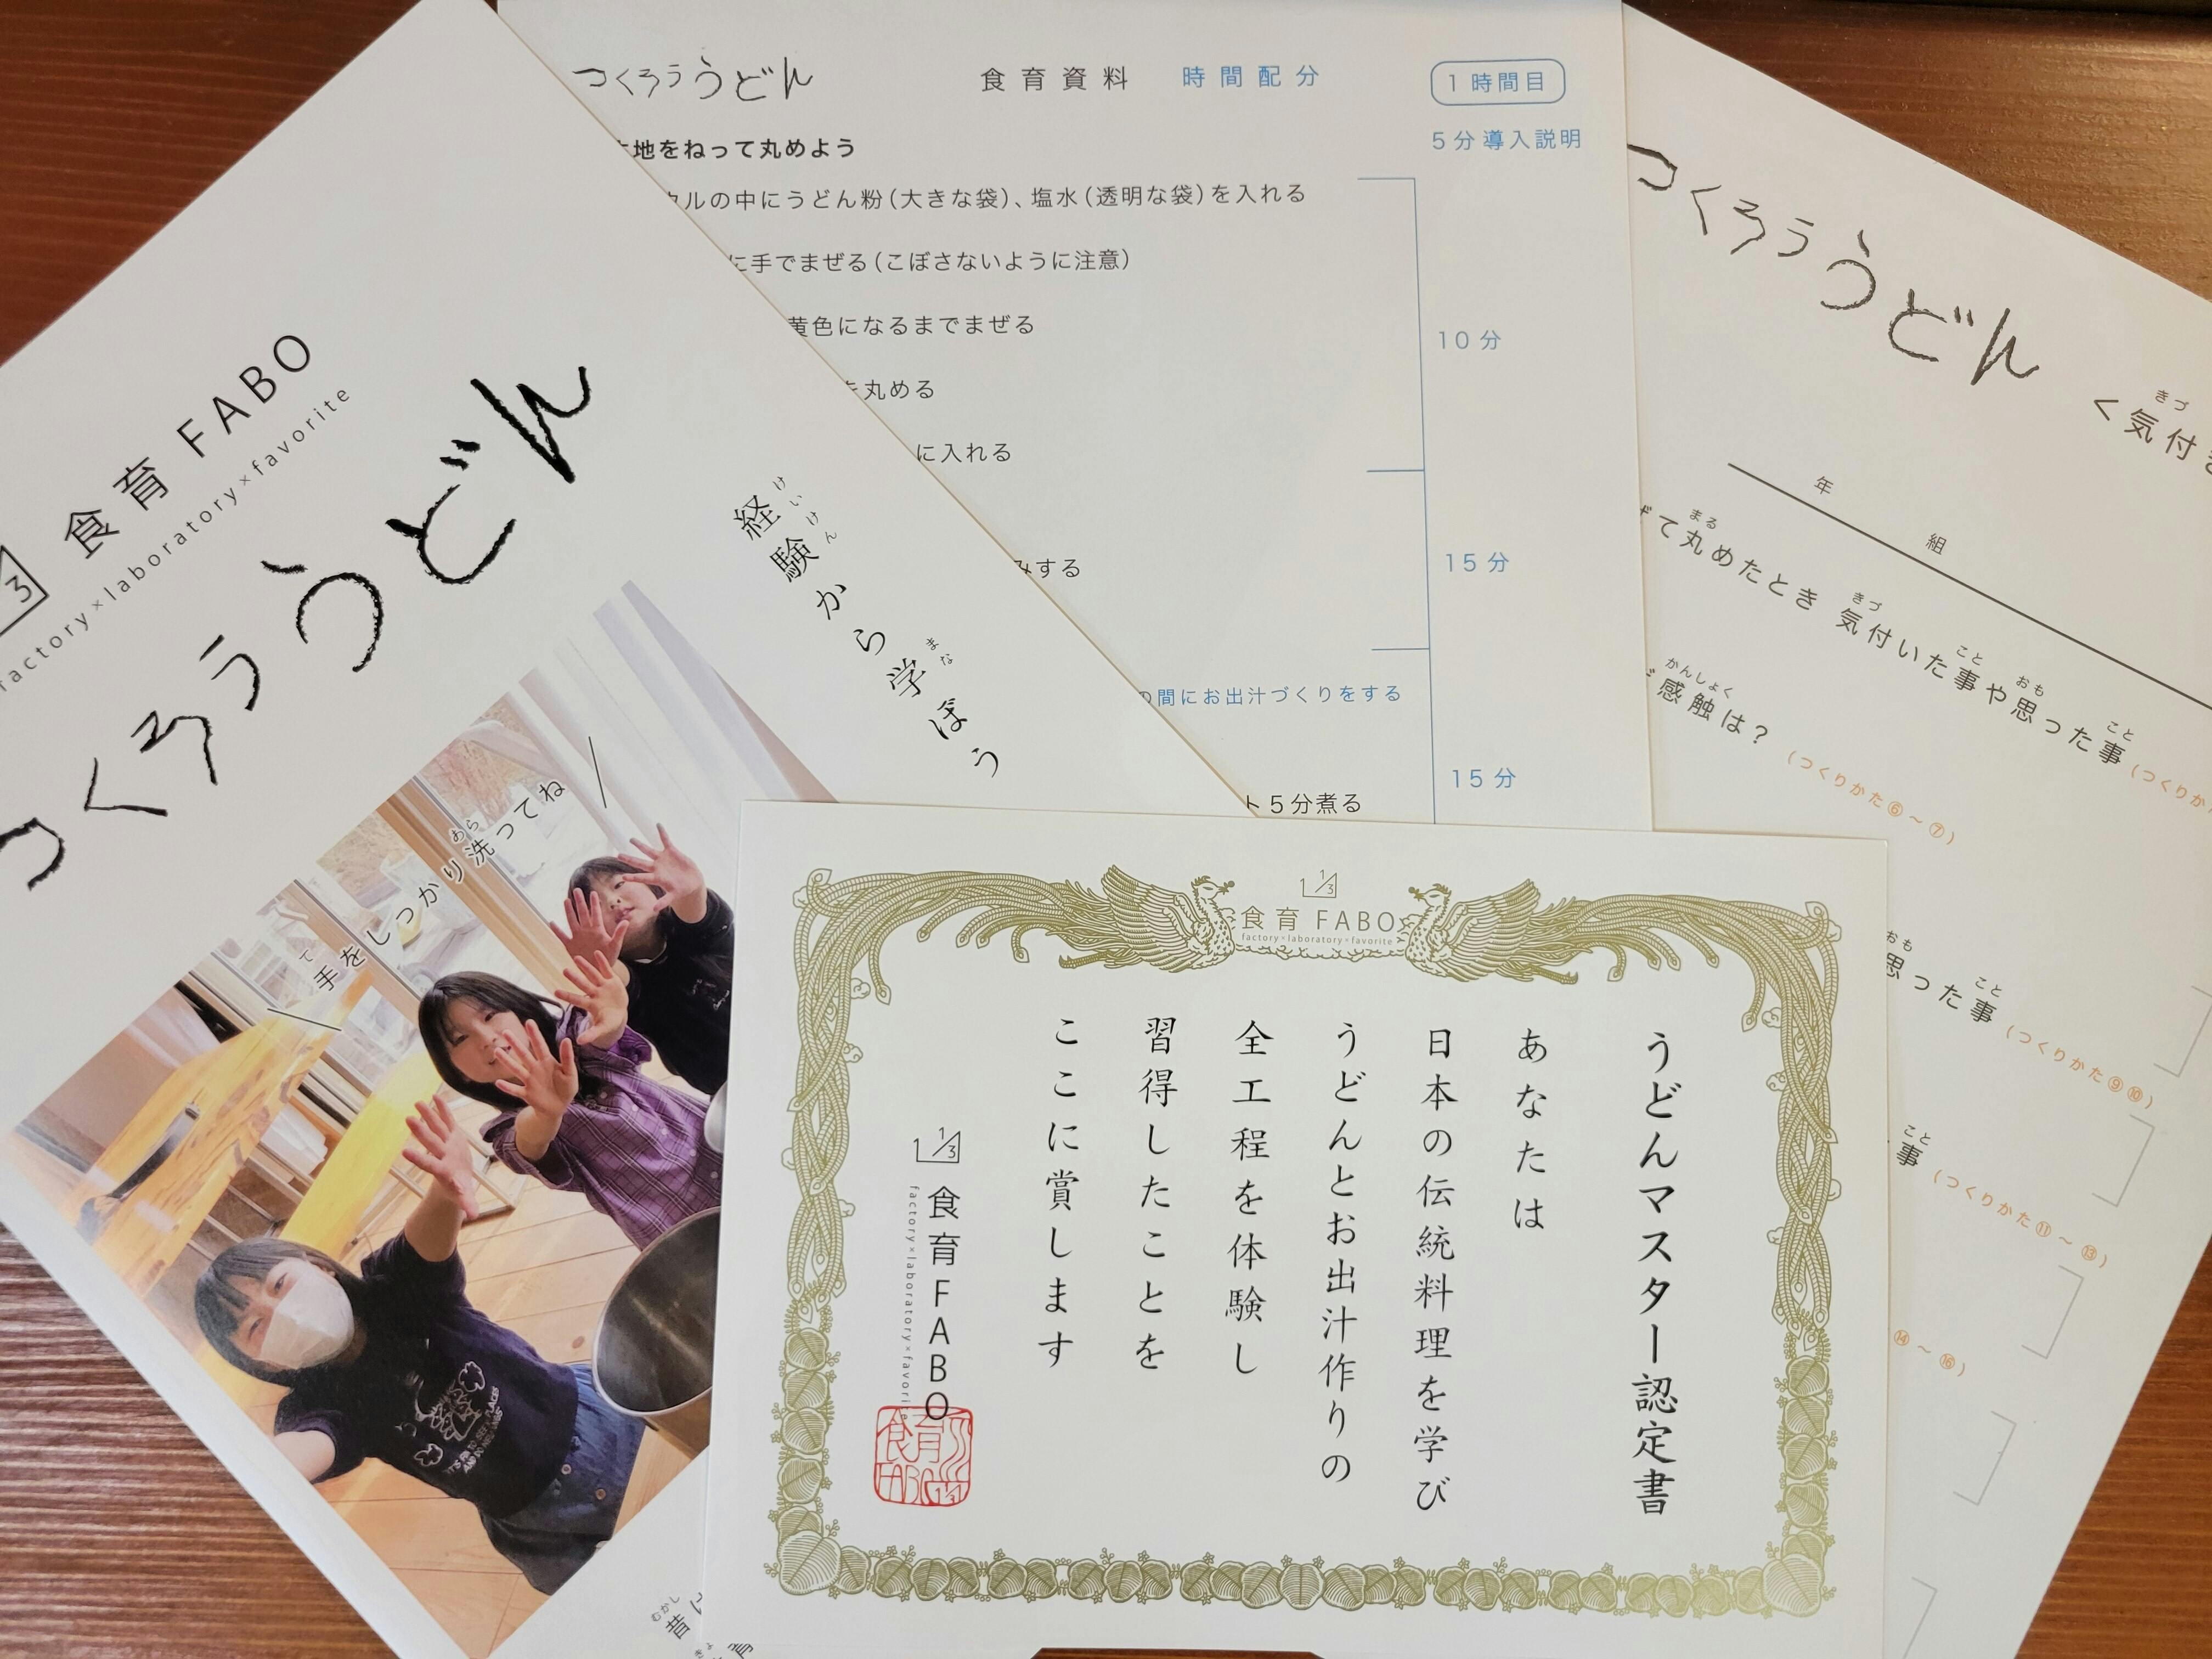 食育 FABO
factory×laboratory×favorite
つくろううどん
経験から学ぼう
けいけん
まな
手をしっかり洗ってね
て
あら
IT'S FUN TO SEE PLACES
AND DO NEW THINGS
むかし
昔は
つくろううどん
食育資料
時間配分
1時間目
5分 導入説明
地をねって丸めよう
ウルの中にうどん粉(大きな袋)、塩水(透明な袋)を入れる
に手でまぜる(こぼさないように注意)
黄色になるまでまぜる
丸める
に入れる
みする
の間にお出汁づくりをする
ト5分煮る
10分
15分
15分
つくろううどん
きづ
く気付き
年
組
まる
て丸めたとき 気付いた事や思った事 (つくりか
きづ
こと
おも
こと
かんしょく
感触は? (つくりかた⑥〜⑦)
おも
こと
思った事 (つくりかた⑨⑩)
こと
事 (つくりかた⑪〜⑬)
⑭〜⑯)
1 1/3
食育 FABO
factory×laboratory×favorite
うどんマスター認定書
あなたは
日本の伝統料理を学び
うどんとお出汁作りの
全工程を体験し
習得したことを
ここに賞します
1 1/3 食育FABO
factory×laboratory×favorite
食育
FABO 1 1/3